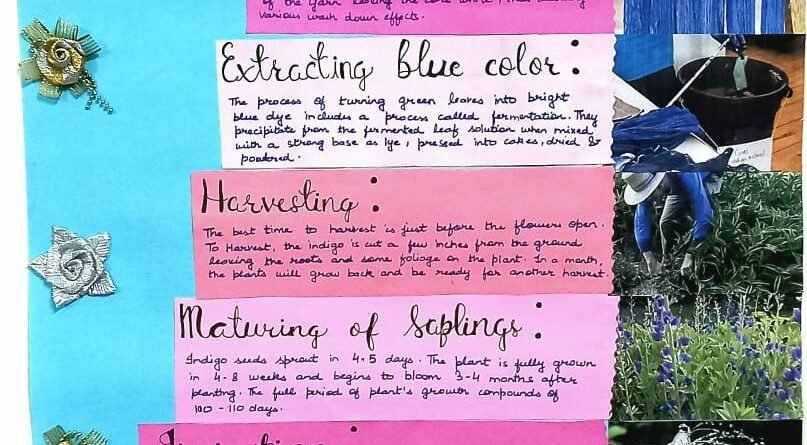 of the yarn leaving the core white, thus
various wash down effects.
Extracting blue color:
The process of turning green leaves into bright
blue dye includes a process called fermentation. They
precipitate from the fermented leaf solution when mixed
with a strong base as lye, pressed into cakes, dried &
powdered.
Harvesting:
The best time to harvest is just before the flowers open.
To Harvest, the indigo is cut a few inches from the ground
leaving the roots and some foliage on the plant. In a month,
the plants will grow back and be ready for another harvest.
Maturing of Saplings:
Indigo seeds sprout in 4-5 days. The plant is fully grown
in 4-8 weeks and begins to bloom 3-4 months after
planting. The full period of plant's growth compounds of
100-110 days.